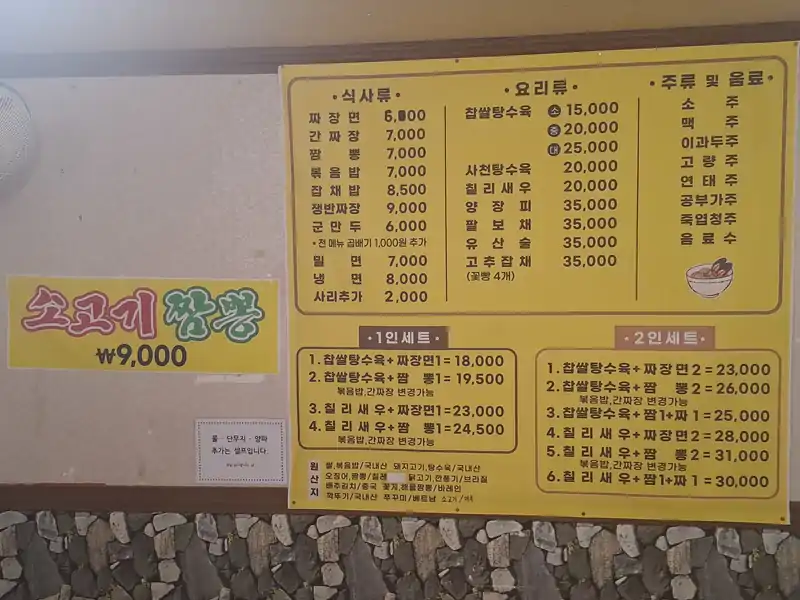 • 식사류 •
짜장면 6,000
간짜장 7,000
짬뽕 7,000
볶음밥 7,000
잡채밥 8,500
쟁반짜장 9,000
군만두 6,000
• 전 메뉴 곱배기 1,000원 추가
밀면 7,000
냉면 8,000
사리추가 2,000
• 요리류 •
찹쌀탕수육 소 15,000
중 20,000
대 25,000
사천탕수육 20,000
칠리새우 20,000
양장피 35,000
팔보채 35,000
유산슬 35,000
고추잡채 35,000
(꽃빵 4개)
• 주류 및 음료 •
소주
맥주
이과두주
고량주
연태주
공부가주
죽엽청주
음료수
소고기 짬뽕
₩9,000
물 · 단무지 · 양파
추가는 셀프입니다.
• 1인세트 •
1. 찹쌀탕수육+짜장면1 = 18,000
2. 찹쌀탕수육+짬 뽕1 = 19,500
볶음밥,간짜장 변경가능
3. 칠리새우+짜장면1 = 23,000
4. 칠리새우+짬 뽕1 = 24,500
볶음밥,간짜장 변경가능
• 2인세트 •
1. 찹쌀탕수육+짜장면 2 = 23,000
2. 찹쌀탕수육+짬 뽕 2 = 26,000
볶음밥,간짜장 변경가능
3. 찹쌀탕수육+짬1+짜 1 = 25,000
4. 칠리새우+짜장면 2 = 28,000
5. 칠리새우+짬 뽕 2 = 31,000
볶음밥,간짜장 변경가능
6. 칠리새우+짬1+짜1 = 30,000
원산지
쌀,볶음밥/국내산 돼지고기,탕수육/국내산
오징어,짬뽕/칠레 닭고기,깐풍기/브라질
배추김치/중국 꽃게,해물짬뽕/바레인
깍두기/국내산 쭈꾸미/베트남 소고기/